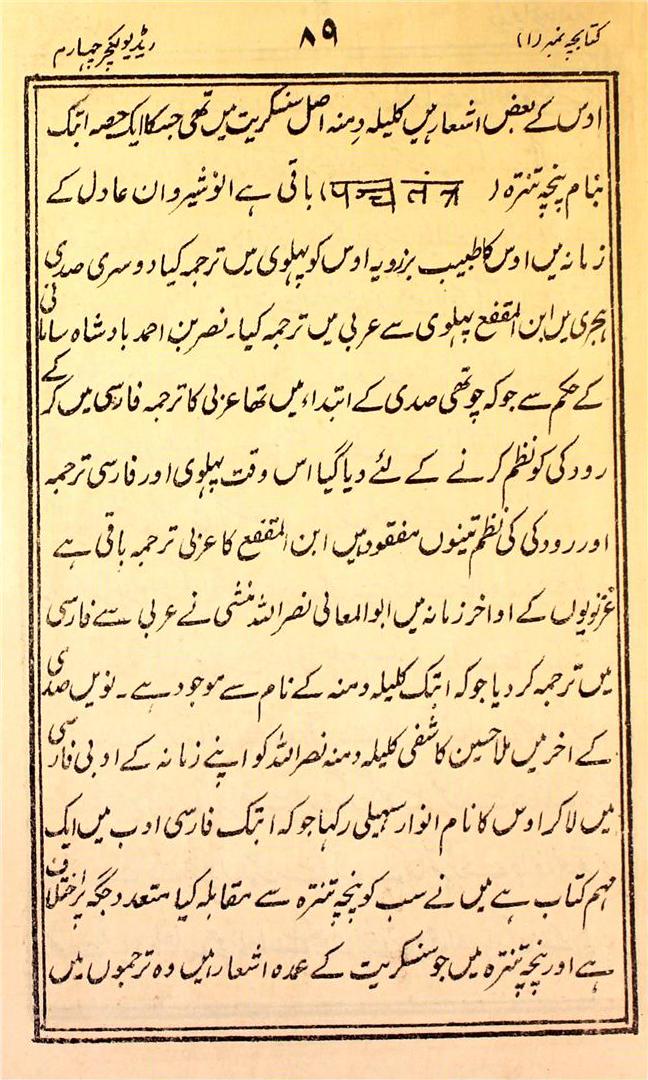 کتابچہ نمبر (۱) ۸۹ ریڈیو لکچر چہارم
اوس کے بعض اشعار ہیں کلیلہ دمنہ اصل سنسکریت میں تھی جسکا ایک حصہ ابتک
بنام پنچہ تنترہ (पञ्च तंत्र) باقی ہے انوشیروان عادل کے
زمانہ میں اوس کا طبیب برزویہ اوس کو پہلوی میں ترجمہ کیا دوسری صدی
ہجری میں ابن المقفع پہلوی سے عربی میں ترجمہ کیا۔ نصر بن احمد بادشاہ سامانی
کے حکم سے جو کہ چوتھی صدی کے ابتداء میں تھا عربی کا ترجمہ فارسی میں کر کے
رودکی کو نظم کرنے کے لئے دیا گیا اس وقت پہلوی اور فارسی ترجمہ
اور رودکی کی نظم تینوں مفقود ہیں ابن المقفع کا عربی ترجمہ باقی ہے
غزنویوں کے اواخر زمانہ میں ابوالمعالی نصر اللہ منشی نے عربی سے فارسی
میں ترجمہ کر دیا جو کہ ابتک کلیلہ دمنہ کے نام سے موجود ہے۔ نویں صدی
کے اخر میں ملا حسین کاشفی کلیلہ دمنہ نصر اللہ کو اپنے زمانہ کے ادبی فارسی
میں لا کر اوس کا نام انوار سہیلی رکہا جو کہ ابتک فارسی ادب میں ایک
مہم کتاب ہے میں نے سب کو پنچہ تنترہ سے مقابلہ کیا متعدد جگہ پر اختلاف
ہے اور پنچہ تنترہ میں جو سنسکریت کے عمدہ اشعار ہیں وہ ترجموں میں